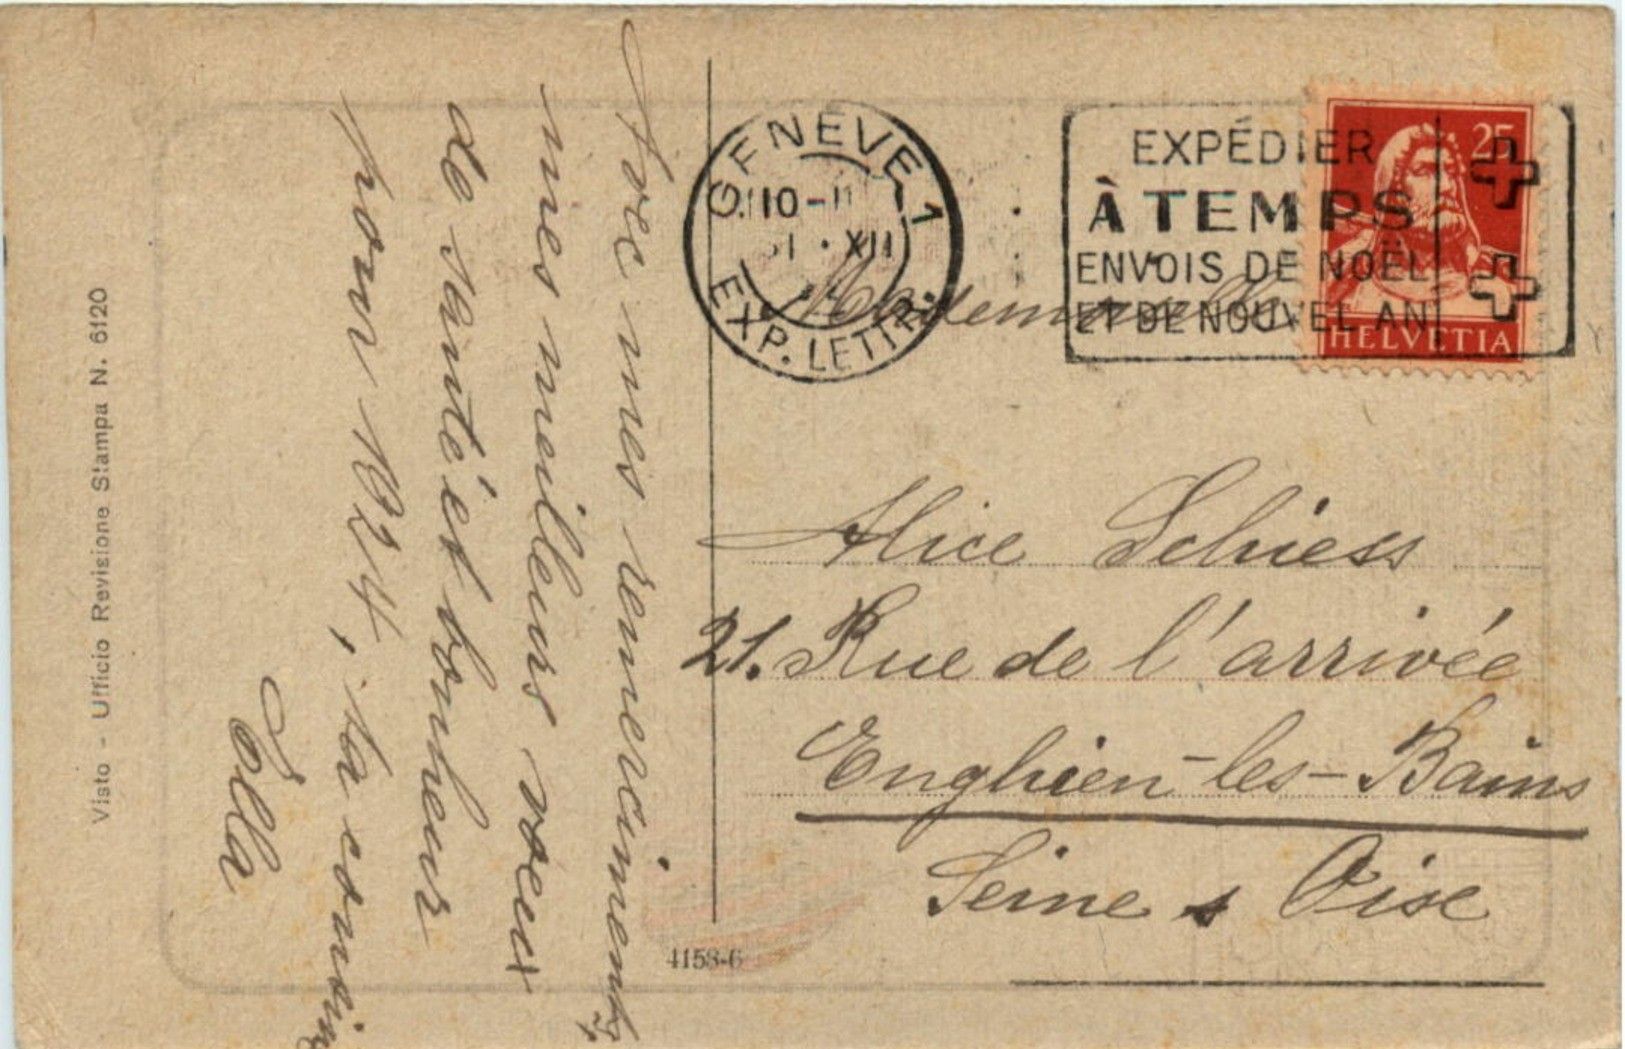 Avec mes remerciements,
mes meilleurs vœux
de santé et bonheur
pour 1924, ta cousine
Lola
Visto - Ufficio Revisione Stampa N. 6120
GENÈVE 1
110-11
XII
EXP. LETTR.
EXPÉDIER
À TEMPS
ENVOIS DE NOËL
ET DE NOUVEL AN
25
HELVETIA
Mademoiselle
Alice Schiess
21. Rue de l'arrivée
Enghien-les-Bains
Seine s Oise
4158-6